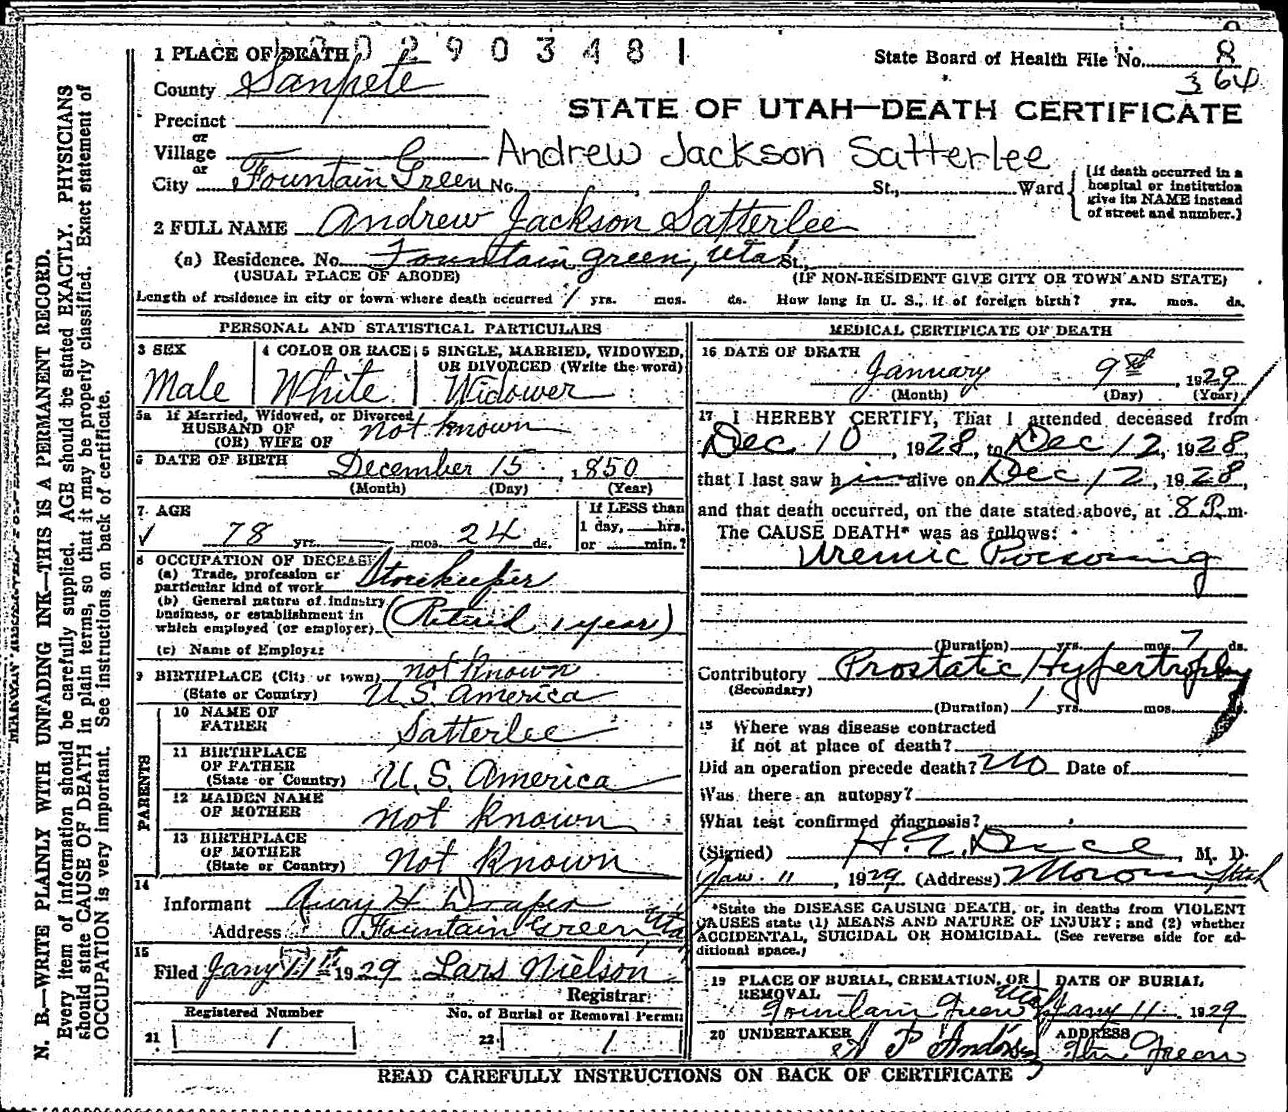 1 PLACE OF DEATH 1 3 0 2 9 0 3 4 8 1
State Board of Health File No. 8
364
County Sanpete
STATE OF UTAH—DEATH CERTIFICATE
Precinct
or
Village
Andrew Jackson Satterlee
or
City Fountain Green No. , St., Ward
(If death occurred in a hospital or institution give its NAME instead of street and number.)
2 FULL NAME Andrew Jackson Satterlee
(a) Residence. No. Fountain green, Utah St.,
(USUAL PLACE OF ABODE) (IF NON-RESIDENT GIVE CITY OR TOWN AND STATE)
Length of residence in city or town where death occurred 1 yrs. mos. ds. How long in U. S., if of foreign birth? yrs. mos. ds.
PERSONAL AND STATISTICAL PARTICULARS
3 SEX
Male
4 COLOR OR RACE
White
5 SINGLE, MARRIED, WIDOWED,
OR DIVORCED (Write the word)
Widower
5a If Married, Widowed, or Divorced
HUSBAND OF
(OR) WIFE OF not known
6 DATE OF BIRTH December 15, 1850
(Month) (Day) (Year)
7. AGE
78 yrs. mos. 24 ds.
If LESS than
1 day, hrs.
or min.?
8 OCCUPATION OF DECEAS
(a) Trade, profession or
particular kind of work Storekeeper
(b) General nature of industry
business, or establishment in
which employed (or employer) (Retired 1 year)
(c) Name of Employer
9 BIRTHPLACE (City or town) not known
(State or Country) U.S. America
PARENTS
10 NAME OF
FATHER Satterlee
11 BIRTHPLACE
OF FATHER
(State or Country) U.S. America
12 MAIDEN NAME
OF MOTHER not known
13 BIRTHPLACE
OF MOTHER
(State or Country) not known
14
Informant H Draper
Address Fountain Green, Uta
15
Filed Jany 11th 1929 Lars Nielson
Registrar
Registered Number
21 1
No. of Burial or Removal Permit
22 1
MEDICAL CERTIFICATE OF DEATH
16 DATE OF DEATH
January 9th, 1929
(Month) (Day) (Year)
17 I HEREBY CERTIFY, That I attended deceased from
Dec 10, 1928, to Dec 12, 1928,
that I last saw him alive on Dec 12, 1928,
and that death occurred, on the date stated above, at 8 P.m.
The CAUSE DEATH* was as follows:
Uremic Poisoning
(Duration) yrs. mos. 7 ds.
Contributory Prostatic Hypertrophy
(Secondary)
(Duration) 1 yrs. mos. ds.
18 Where was disease contracted
if not at place of death?
Did an operation precede death? No Date of
Was there an autopsy?
What test confirmed diagnosis?
(Signed) , M. D.
Jan. 11, 1929 (Address) Moroni Utah
*State the DISEASE CAUSING DEATH, or, in deaths from VIOLENT
CAUSES state (1) MEANS AND NATURE OF INJURY; and (2) whether
ACCIDENTAL, SUICIDAL OR HOMICIDAL. (See reverse side for ad-
ditional space.)
19 PLACE OF BURIAL, CREMATION, OR
REMOVAL
Fountain Green Utah
DATE OF BURIAL
Jany 11 1929
20 UNDERTAKER
ADDRESS
Green
READ CAREFULLY INSTRUCTIONS ON BACK OF CERTIFICATE
N. B.—WRITE PLAINLY WITH UNFADING INK—THIS IS A PERMANENT RECORD.
Every item of information should be carefully supplied. AGE should be stated EXACTLY. PHYSICIANS
should state CAUSE OF DEATH in plain terms, so that it may be properly classified. Exact statement of
OCCUPATION is very important. See instructions on back of certificate.